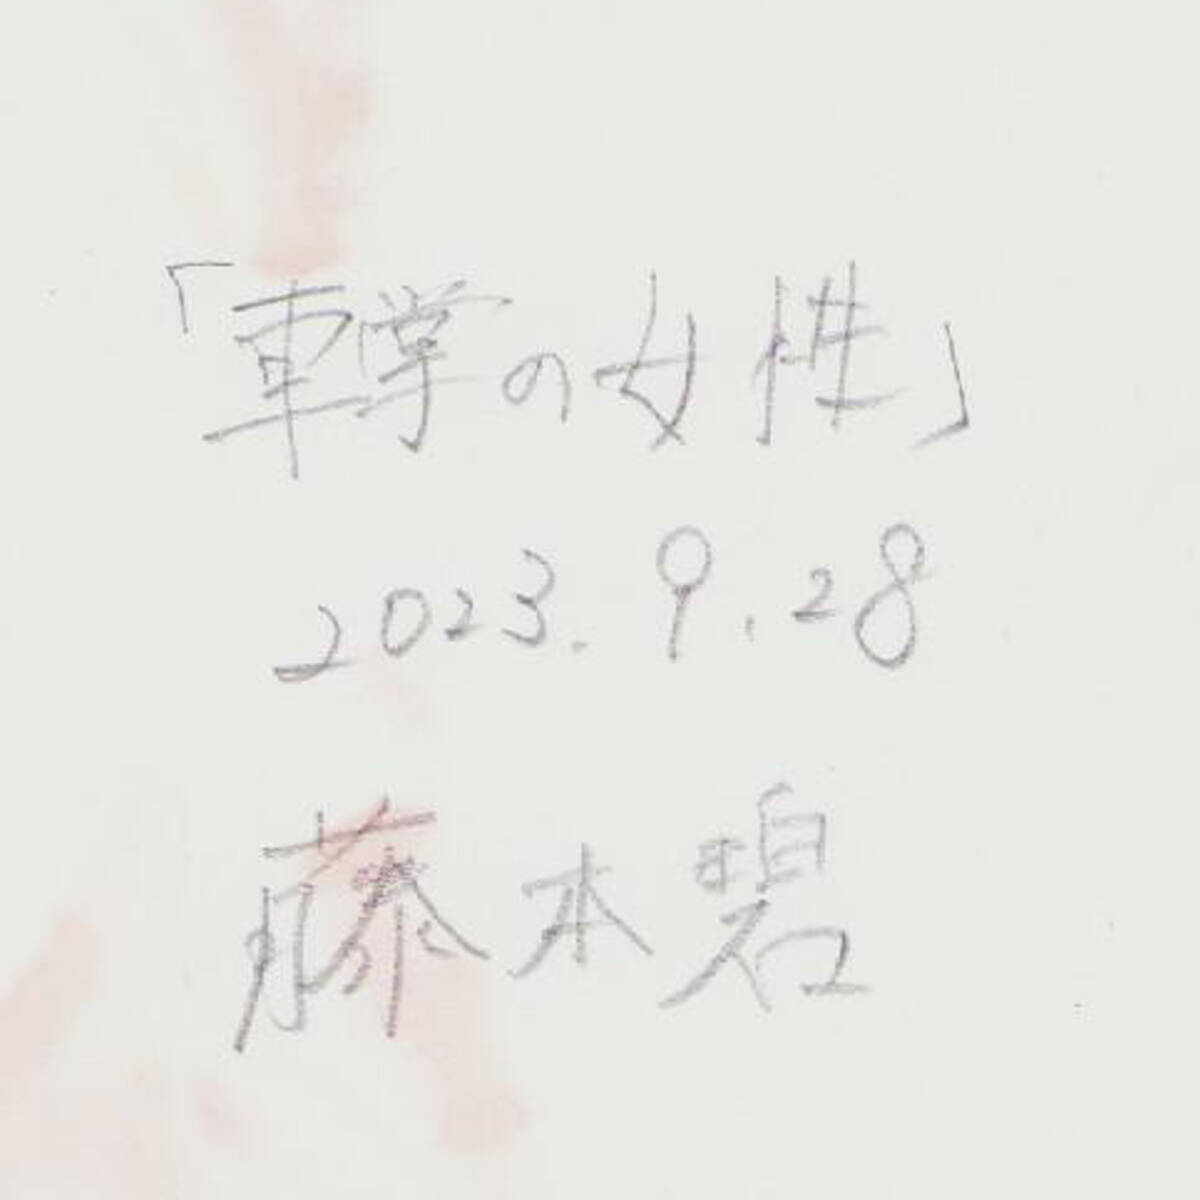 「車掌の女性」
2023.9.28
藤本碧